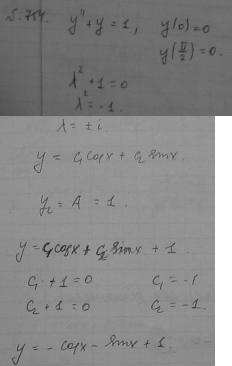 5.754. y'' + y = 1, y(0) = 0
y(π/2) = 0.
λ² + 1 = 0
λ² = -1
λ = ± i.
y = C₁ cos x + C₂ sin x.
y₂ = A = 1.
y = C₁ cos x + C₂ sin x + 1.
C₁ + 1 = 0 C₁ = -1
C₂ + 1 = 0 C₂ = -1.
y = - cos x - sin x + 1.